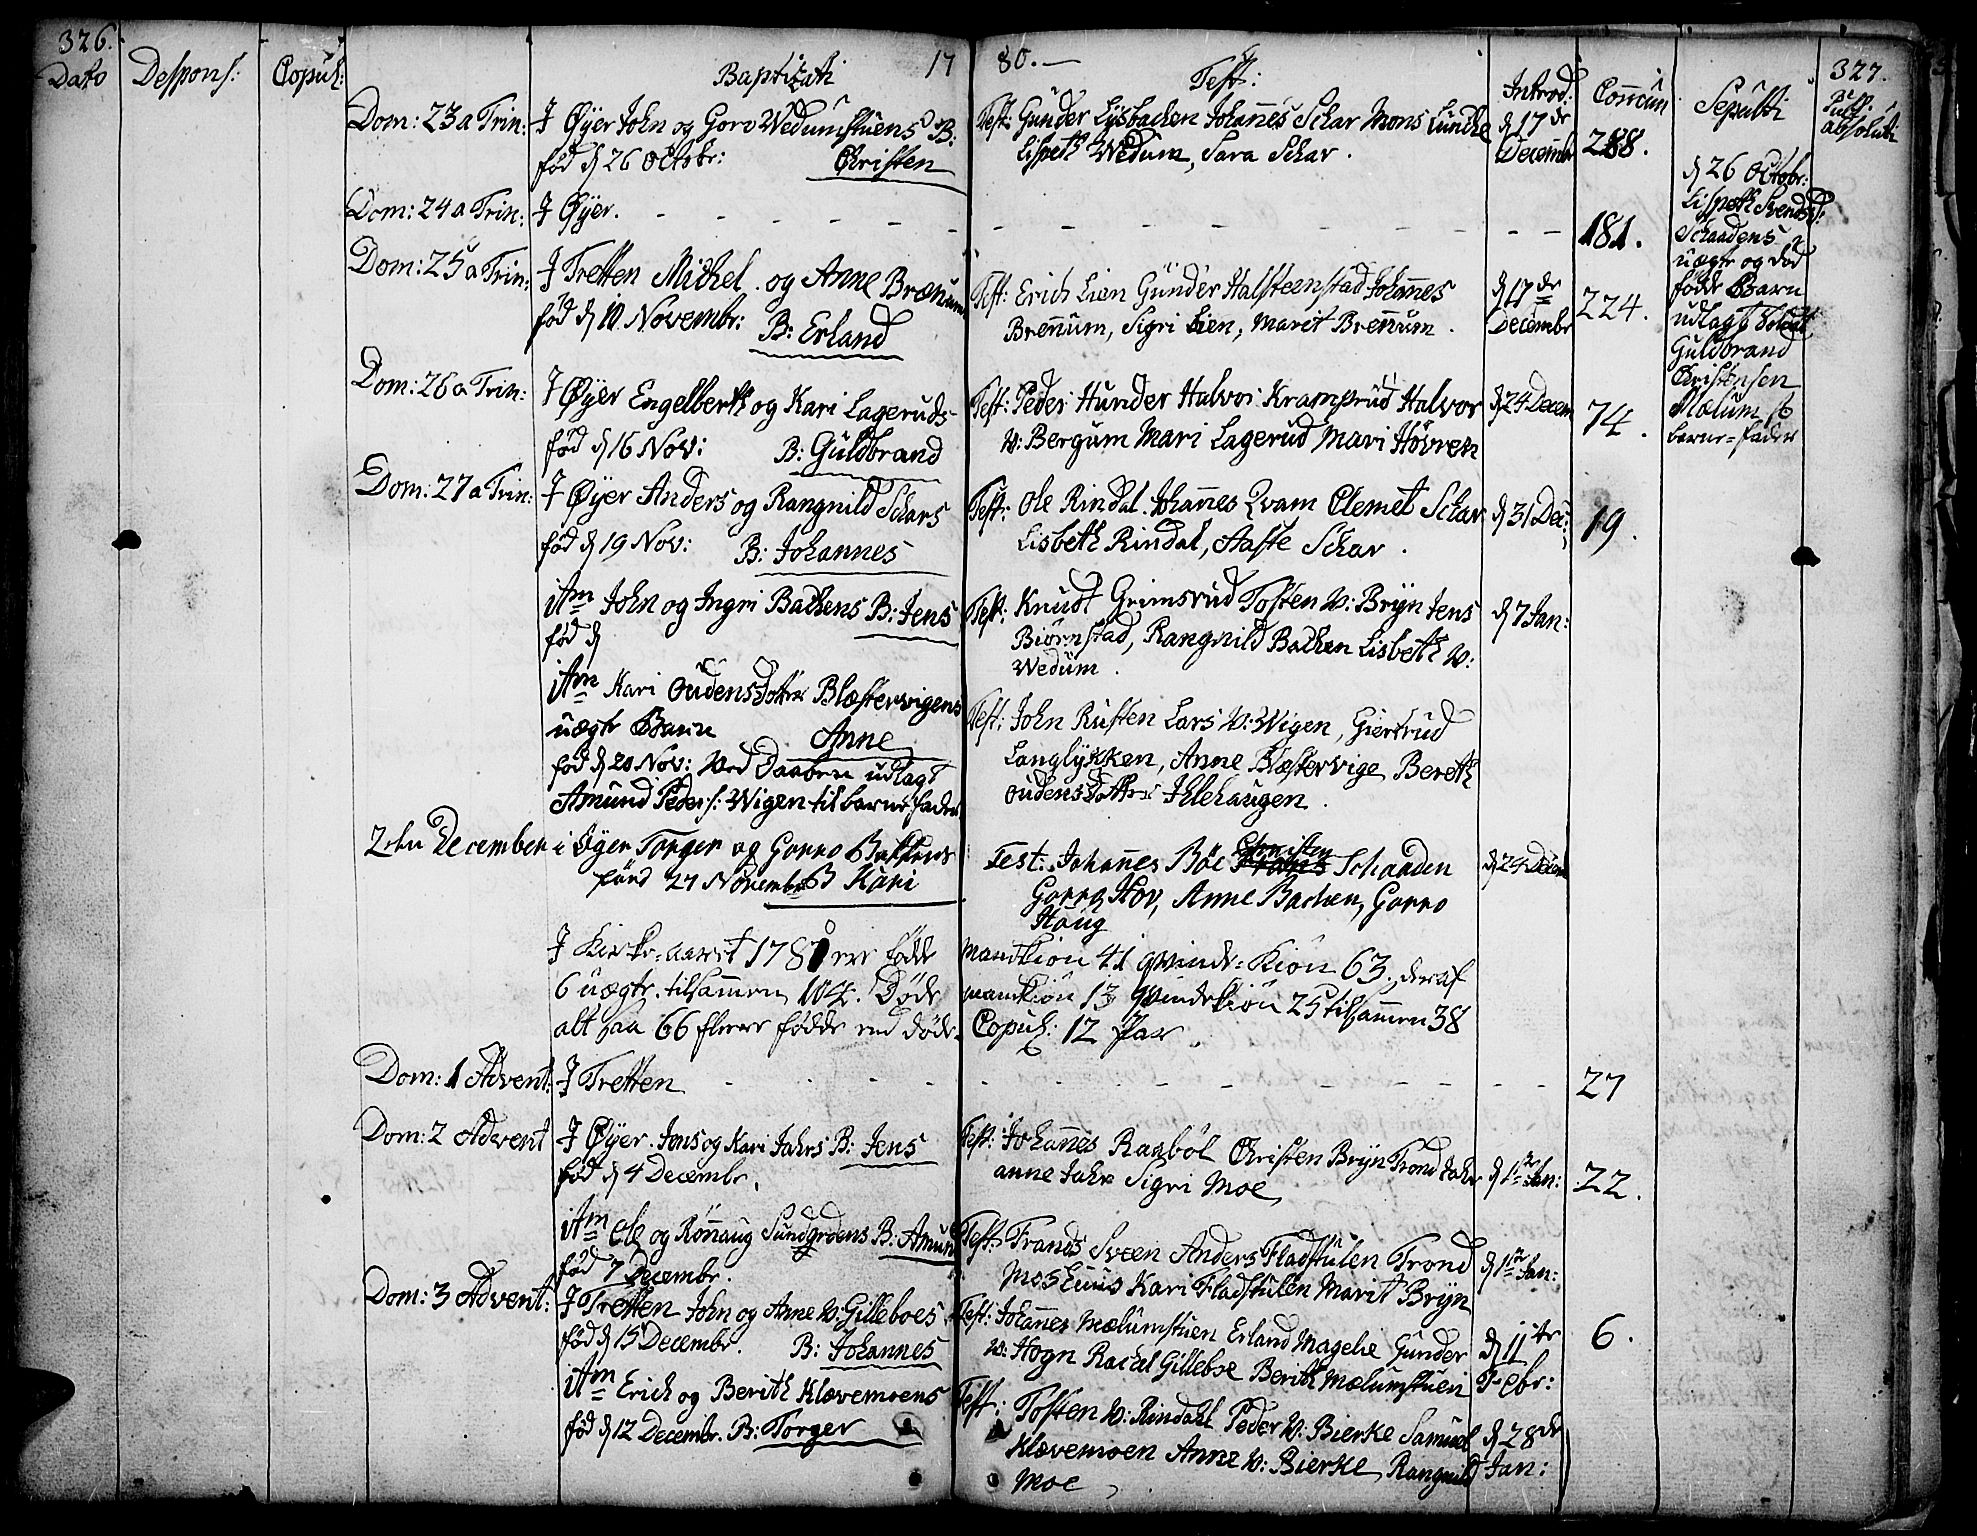 326.
Dato
Despons:
Copul:
Baptizati
17
80.
Test:
Introd:
Com̄un
Sepulti
327.
Publ:
absoluti
Dom: 23 a Trin:
I Øyer John og Goro Wedumstuens B:
fød d 26 Octobr: Christen
Test: Gunder Lysbachen Johan̄es Schar Mons Lunche
Lisbeth Wedum, Sara Schar.
d 17de
Decembr
288.
d 26 Octobr:
Lisbeth Svendsd:
Schaadens
uægte og død
fødde Barn
udlagt Soldat
Guldbrand
Christensen
Mælum til
barne-fader
Dom: 24 a Trin:
I Øyer.
181.
Dom: 25 a Trin:
I Tretten Michel og Anne Brænums
fød d 10 Novembr: B: Erland
Test: Erich Lien Gunder Halsteenstad Johan̄es
Bren̄um, Sigri Lien, Marit Bren̄um.
d 17de
Decembr
224.
Dom: 26 a Trin:
I Øyer Engelbert og Kari Lageruds
fød d 16 Nov: B: Guldbrand
Test: Peder Hunder Halvor Kramprud Halvor
W: Bergum Mari Lagerud Mari Høvren
d 24 Decem
74.
Dom: 27 a Trin:
I Øyer Anders og Rangnild Schars
fød d 19 Nov: B: Johannes
Test: Ole Rindal Johan̄es Qvam Clemet Schar
Lisbeth Rindal, Aaste Schar.
d 31 Dec:
19.
itm John og Ingri Bachens B: Jens
fød d
Test: Knud Grimsrud Tosten W: Bryn Jens
Biørnstad, Rangnild Bachen Lisbeth W:
Wedum.
d 7 Jan:
itm Kari Oudensdotter Blæstervigens
uægte Barn Anne
fød d 20 Nov: Ved Daaben udlagt
Amund Peders: Wigen til barnefader
Test: John Rusten Lars W: Wigen, Giertrud
Langlykken, Anne Blæstervige Bereth
Oudensdotter Ihlehaugen.
2den December
i Øyer Torger og Gorro Bakkens
fød 27 Novembr B Kari
Test: Johan̄es Böe Christen Schaaden
Gorro Hov, Anne Bachen, Gorro
Haug
d 24 Decem
I Kirke-aaret 1780 ere fødde
6 uægte. tilsammen 104. Døde
alt saa 66 flere fødde end døde.
Mandkiøn 41 qvinde-Kiøn 63, deraf
mandkiøn 13 qvindekiøn 25 tilsammen 38
Copul: 12 Par.
Dom: 1 Advent:
I Tretten
27
Dom: 2 Advent
I Øyer. Jens og Kari Jahrs B: Jens
fød d 4 Decembr.
Test: Johan̄es Raabøl Christen Bryn Trond Jahr
anne Jahr Sigri Moe
d 1te Jan:
22.
itm Ole og Røn̄aug Sundgrdens B: Amund
fød 7 Decembr.
Test: Frands Sveen Anders Fladstulen Trond
Moshuus Kari Fladstulen Marit Bryn
d 1te Jan:
Dom: 3 Advent:
I Tretten John og Anne W: Gilleboes
fød d 15 Decembr. B: Johannes
Test: Johan̄es Mælumstuen Erland Magelie Gunder
W: Hogn Rachel Gilleboe Berith Mælumstuen
d 11te
Febr:
6.
itm Erich og Berith Klævemoens
fød d 12 Decembr. B: Torger
Test: Tosten W: Rindahl Peder W: Bierke Samuel
Klævemoen Anne W: Bierke Rangnild
Moe
d 28de
Jan: